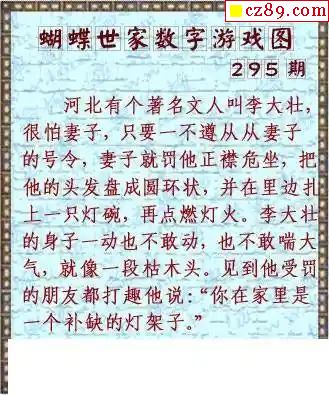 cz89.com
蝴蝶世家数字游戏图
295期
河北有个著名文人叫李大壮，
很怕妻子，只要一不遵从从妻子
的号令，妻子就罚他正襟危坐，把
他的头发盘成圆环状，并在里边扎
上一只灯碗，再点燃灯火。李大壮
的身子一动也不敢动，也不敢喘大
气，就像一段枯木头。见到他受罚
的朋友都打趣他说：“你在家里是
一个补缺的灯架子。”